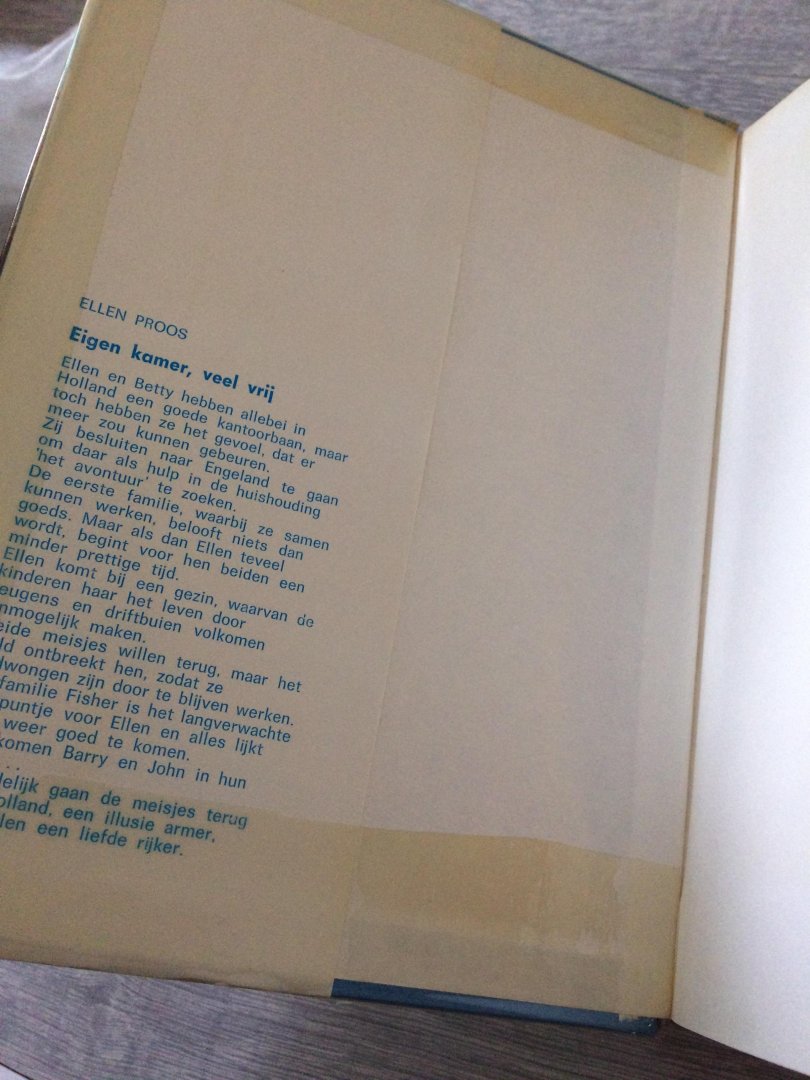 ELLEN PROOS
Eigen kamer, veel vrij
Ellen en Betty hebben allebei in
Holland een goede kantoorbaan, maar
toch hebben ze het gevoel, dat er
meer zou kunnen gebeuren.
Zij besluiten naar Engeland te gaan
om daar als hulp in de huishouding
'het avontuur' te zoeken.
De eerste familie, waarbij ze samen
kunnen werken, belooft niets dan
goeds. Maar als dan Ellen teveel
wordt, begint voor hen beiden een
minder prettige tijd.
Ellen komt bij een gezin, waarvan de
kinderen haar het leven door
eugens en driftbuien volkomen
nmogelijk maken.
eide meisjes willen terug, maar het
ld ontbreekt hen, zodat ze
dwongen zijn door te blijven werken.
familie Fisher is het langverwachte
puntje voor Ellen en alles lijkt
weer goed te komen.
komen Barry en John in hun
. .
delijk gaan de meisjes terug
olland, een illusie armer,
len een liefde rijker.